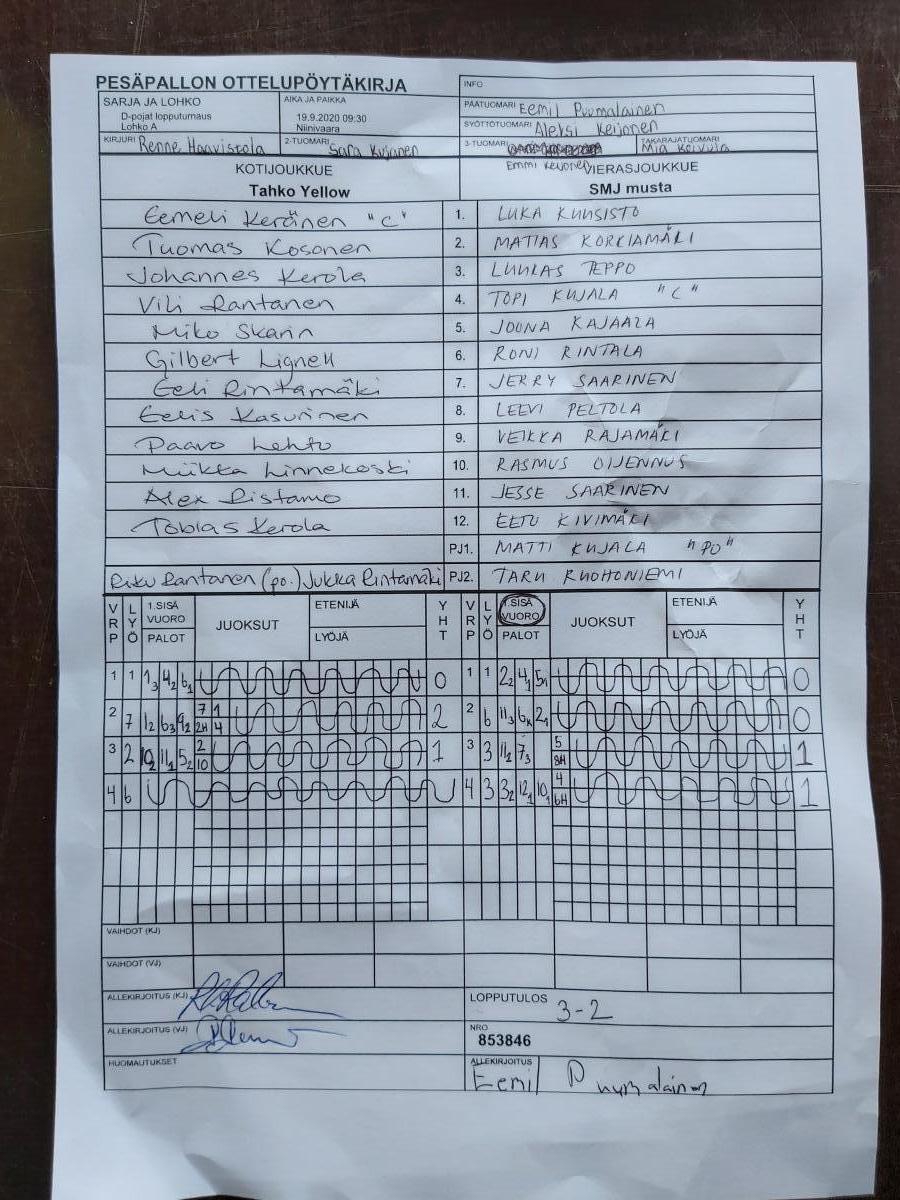 PESÄPALLON OTTELUPÖYTÄKIRJA
INFO
SARJA JA LOHKO
D-pojat lopputurnaus
Lohko A
AIKA JA PAIKKA
19.9.2020 09:30
Niinivaara
PÄÄTUOMARI Eemil Puumalainen
SYÖTTÖTUOMARI Aleksi Keijonen
KIRJURI Renne Haavistola
2-TUOMARI Sara Kujanen
3-TUOMARI Emmi Keijonen
TAKARAJATUOMARI Mia Koivula
KOTIJOUKKUE
Tahko Yellow
VIERASJOUKKUE
SMJ musta
Eemeli Keränen "C" 1. LUKA KUUSISTO
Tuomas Kosonen 2. MATIAS KORKIAMÄKI
Johannes Kerola 3. LUUKAS TEPPO
Vili Rantanen 4. TOPI KUJALA "C"
Miko Skarin 5. JOONA KAJAALA
Gilbert Lignell 6. RONI RINTALA
Eeli Rintamäki 7. JERRY SAARINEN
Eelis Kasurinen 8. LEEVI PELTOLA
Paavo Lehto 9. VEIKKA RAJAMÄKI
Miikka Linnekoski 10. RASMUS OIJENNUS
Alex Ristamo 11. JESSE SAARINEN
Tobias Kerola 12. EETU KIVIMÄKI
PJ1. MATTI KUJALA "PO"
Riku Rantanen (po.) Jukka Rintamäki PJ2. TARU RUOHONIEMI
VRP LYÖ 1.SISÄ VUORO PALOT JUOKSUT ETENIJÄ LYÖJÄ YHT VRP LYÖ 1.SISÄ VUORO PALOT JUOKSUT ETENIJÄ LYÖJÄ YHT
1 1 1₃ 4₂ 6₁ 0 1 1 2₂ 4₁ 5ₙ 0
2 7 1₂ 6₃ 9₂ 7 1 2H 4 2 2 6 11₃ 6ₖ 2₁ 0
3 2 10₂ 11₁ 5₂ 2 10 1 3 3 11₂ 7₃ 5 8H 1
4 6 4 3 3₂ 12₁ 10₁ 4 6H 1
VAIHDOT (KJ)
VAIHDOT (VJ)
ALLEKIRJOITUS (KJ)
LOPPUTULOS 3-2
ALLEKIRJOITUS (VJ)
NRO
853846
HUOMAUTUKSET
ALLEKIRJOITUS
Eemil Puumalainen